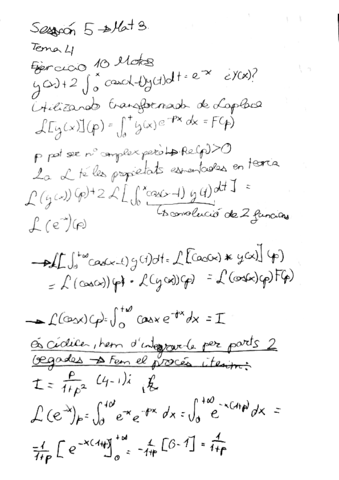 Sesión 5 → Mat 3
Tema 4
Ejercicio 10 Mat3
y(x)+2∫₀ˣ cos(x-t)y(t)dt = e⁻ˣ ¿Y(x)?
Utilizando transformada de Laplace
L[y(x)](p) = ∫₀⁺ y(x)e⁻ᵖˣ dx = F(p)
p pot ser nº complex però → Re(p)>0
La L té les propietats esmentades en teoria
L(y(x))(p)+2 L[∫₀ˣ cos(x-t) y(t)dt] =
→ convolució de 2 funcions
L(e⁻ˣ)(p)
→ L[∫₀⁺∞ cos(x-t)y(t)dt = L[cos(x) * y(x)](p)
= L(cos(x))(p) · L(y(x))(p) = L(cos(x)(p)F(p)
→ L(cosx)(p) = ∫₀⁺∞ cosx e⁻ᵖˣ dx = I
és cíclica, hem d'integrar-la per parts 2
vegades → Fem el procés i tenim:
I = p/(1+p²)
L(e⁻ˣ)p = ∫₀⁺∞ e⁻ˣ e⁻ᵖˣ dx = ∫₀⁺∞ e⁻ˣ⁽¹⁺ᵖ⁾ dx =
-1/(1+p) [e⁻ˣ⁽¹⁺ᵖ⁾]₀⁺∞ = -1/(1+p) [0-1] = 1/(1+p)